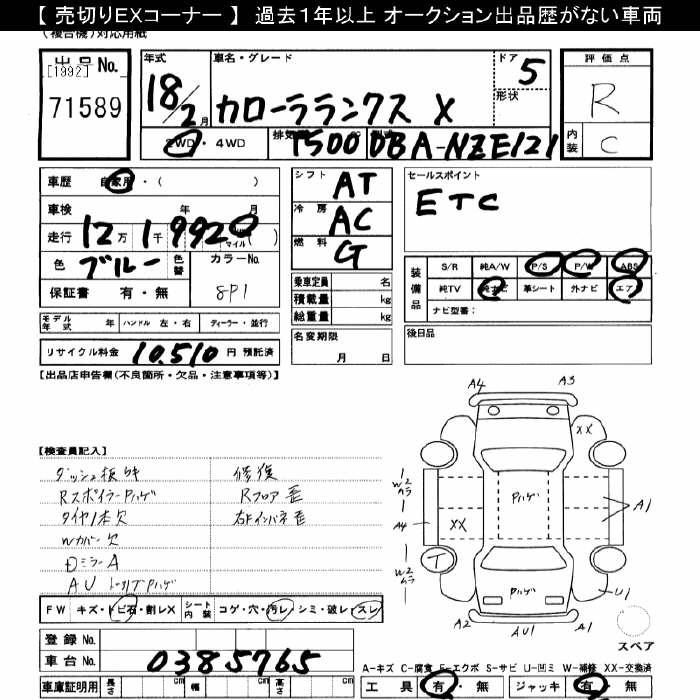 【 売切りEXコーナー 】 過去1年以上 オークション出品歴がない車両
(複合機)対応用紙
出品No.
[1992]
71589
年式
18/2月
車名・グレード
カローラランクス X
ドア 5
形状
評価点
R
内装 C
2WD・4WD
1500
DBA-NZE121
車歴 自家用・( )
車検 年 月
走行 12万1千992 マイル( )
色 ブルー 色替
カラーNo.
8P1
保証書 有・無
シフト AT
冷房 AC
燃料 G
セールスポイント
ETC
装備品
S/R 純A/W P/S P/W ABS
純TV 純ナビ 革シート 外ナビ エア
ナビ型番:
乗車定員 名
積載量 kg
総重量 kg
モデル年式 年 ハンドル 左・右 ディーラー・並行
リサイクル料金 10,510円 預託済
名変期限
月 日
後日品
【出品店申告欄(不良箇所・欠品・注意事項等)】
【検査員記入】
ダッシュ板キ
Rスポイラーアハゲ
タイヤ1本欠
Wカバー欠
ミラーA
修復
Rフロア歪
右Fインパネ歪
FW キズ・トビ石・割レX
シート内装 コゲ・穴・汚レ・シミ・破レ・スレ
A4 A3
XX
W2
A4 XX
A1
T
W2
U1
A2 AU1 A1
スペア
登録No.
車台No. 0385765
A-キズ C-腐食 E-エクボ S-サビ U-凹ミ W-補修 XX-交換済
車庫証明用 長さ cm 幅 cm 高さ cm
工具 有・無 ジャッキ 有・無